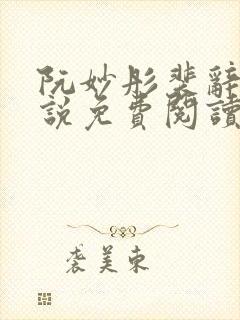 阮妙彤裴辭
說免費閱讀
裘美東